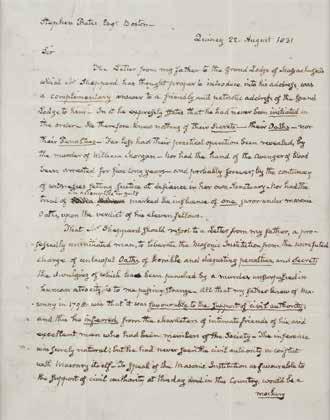 Stephen Bates Esqr Boston
Quincy 22. August 1831
Sir
The Letter from my father to the Grand Lodge of Massachusetts
which Mr Sheppard has thought proper to introduce into his address was
a complimentary answer to a friendly and patriotic address of the Grand
Lodge to him. In it he expressly states that he had never been initiated in
the order. He therefore knew nothing of their Secrets their Oaths nor
their Penalties. Far less had their practical operation been revealed, by
the murder of William Morgan nor had the hand of the avenger of blood
been arrested for five long years and probably forever, by the contumacy
of witnesses setting justice at defiance in her own Sanctuary. Nor had the
trial of an attempt by guilt marked the influence of one juror under masonic
Oaths, upon the verdict of his eleven fellows.
That Mr Sheppard should resort to a letter from my father, a pro-
fessedly uninitiated man, to liberate the Masonic Institution from the unrefuted
charge of unlawful Oaths of horrible and disgusting penalties, and Secrets
the divulging of which has been punished by a murder unsurpassed in
human atrocity is to me passing strange. All that my father knew of Ma-
sonry in 1798 was that it was favourable to the support of civil authority;
and this he inferred from the characters of intimate friends of his and
excellent men who had been members of the Society. The inference
was surely natural; but he had never seen the civil authority in conflict
with Masonry itself. To speak of the Masonic Institution as favourable to
the support of civil authority at this day and in this Country, would be a
mockery